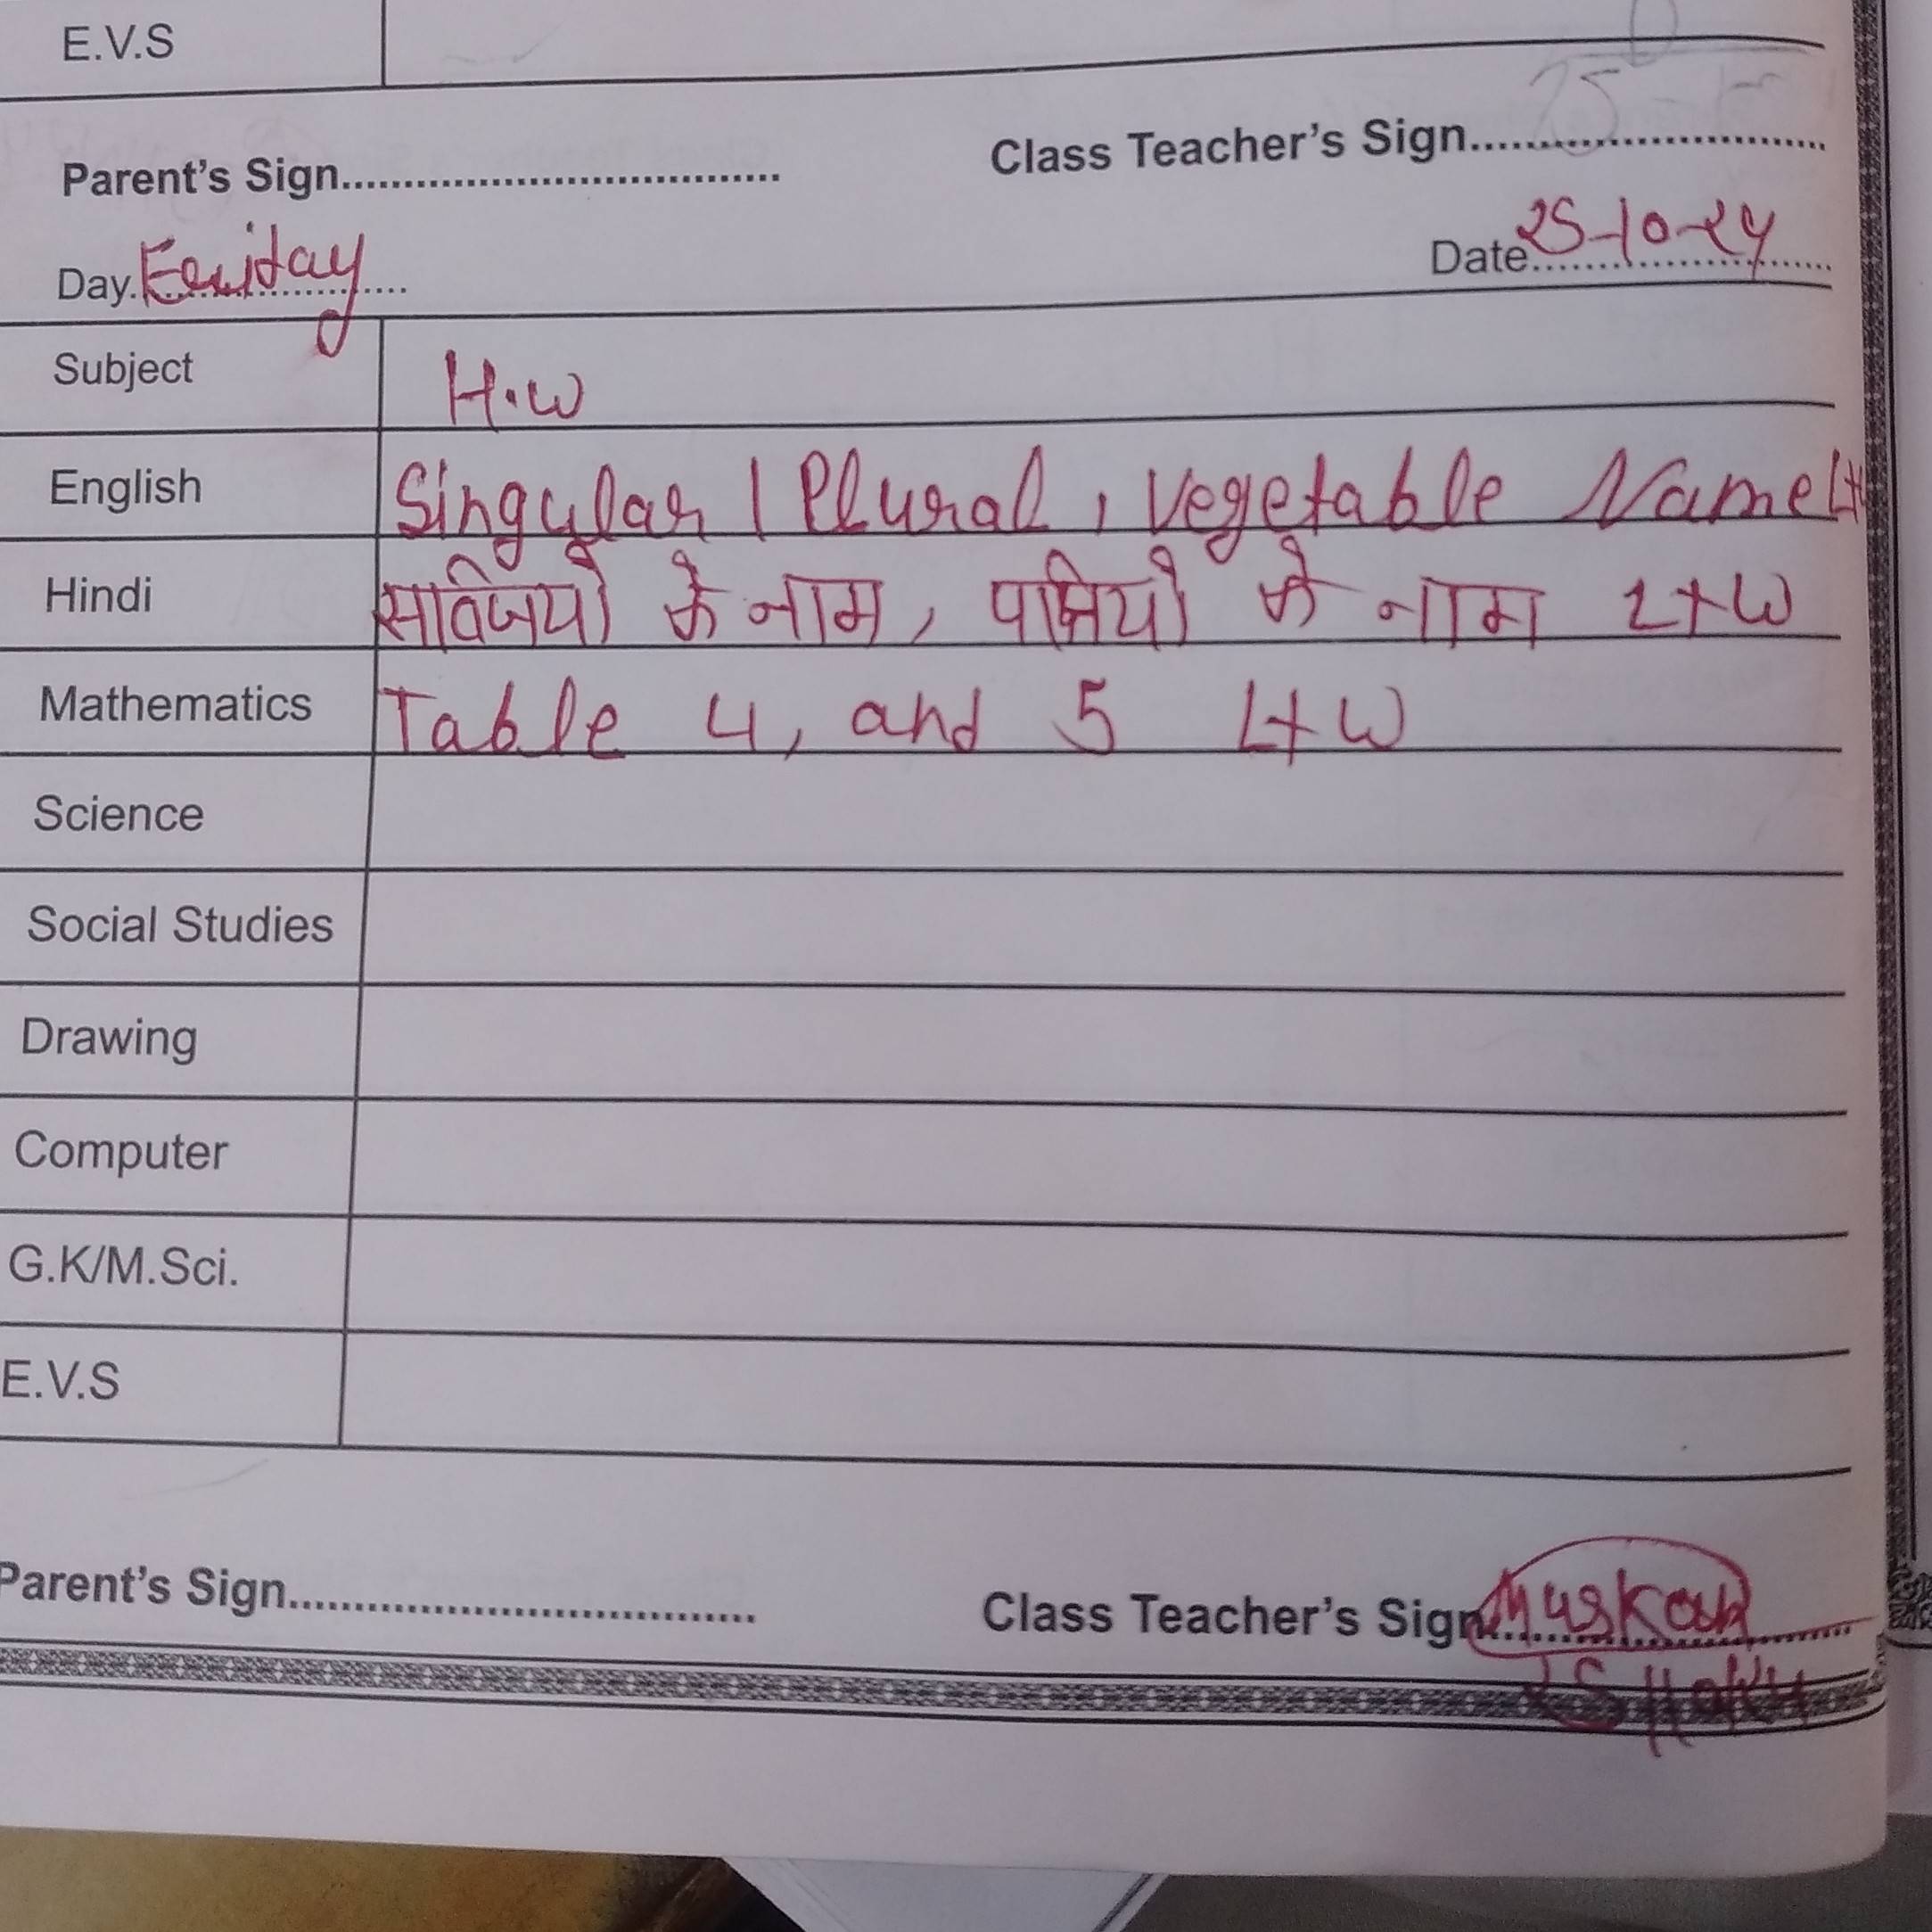 E.V.S
Parent's Sign.................................... Class Teacher's Sign..............................
Day. Friday Date 25-10-24
Subject H.W
English Singular / Plural, Vegetable Name L+
Hindi सब्जियों के नाम, पक्षियों के नाम L+W
Mathematics Table 4, and 5 L+W
Science
Social Studies
Drawing
Computer
G.K/M.Sci.
E.V.S
Parent's Sign.................................... Class Teacher's Sign Muskan